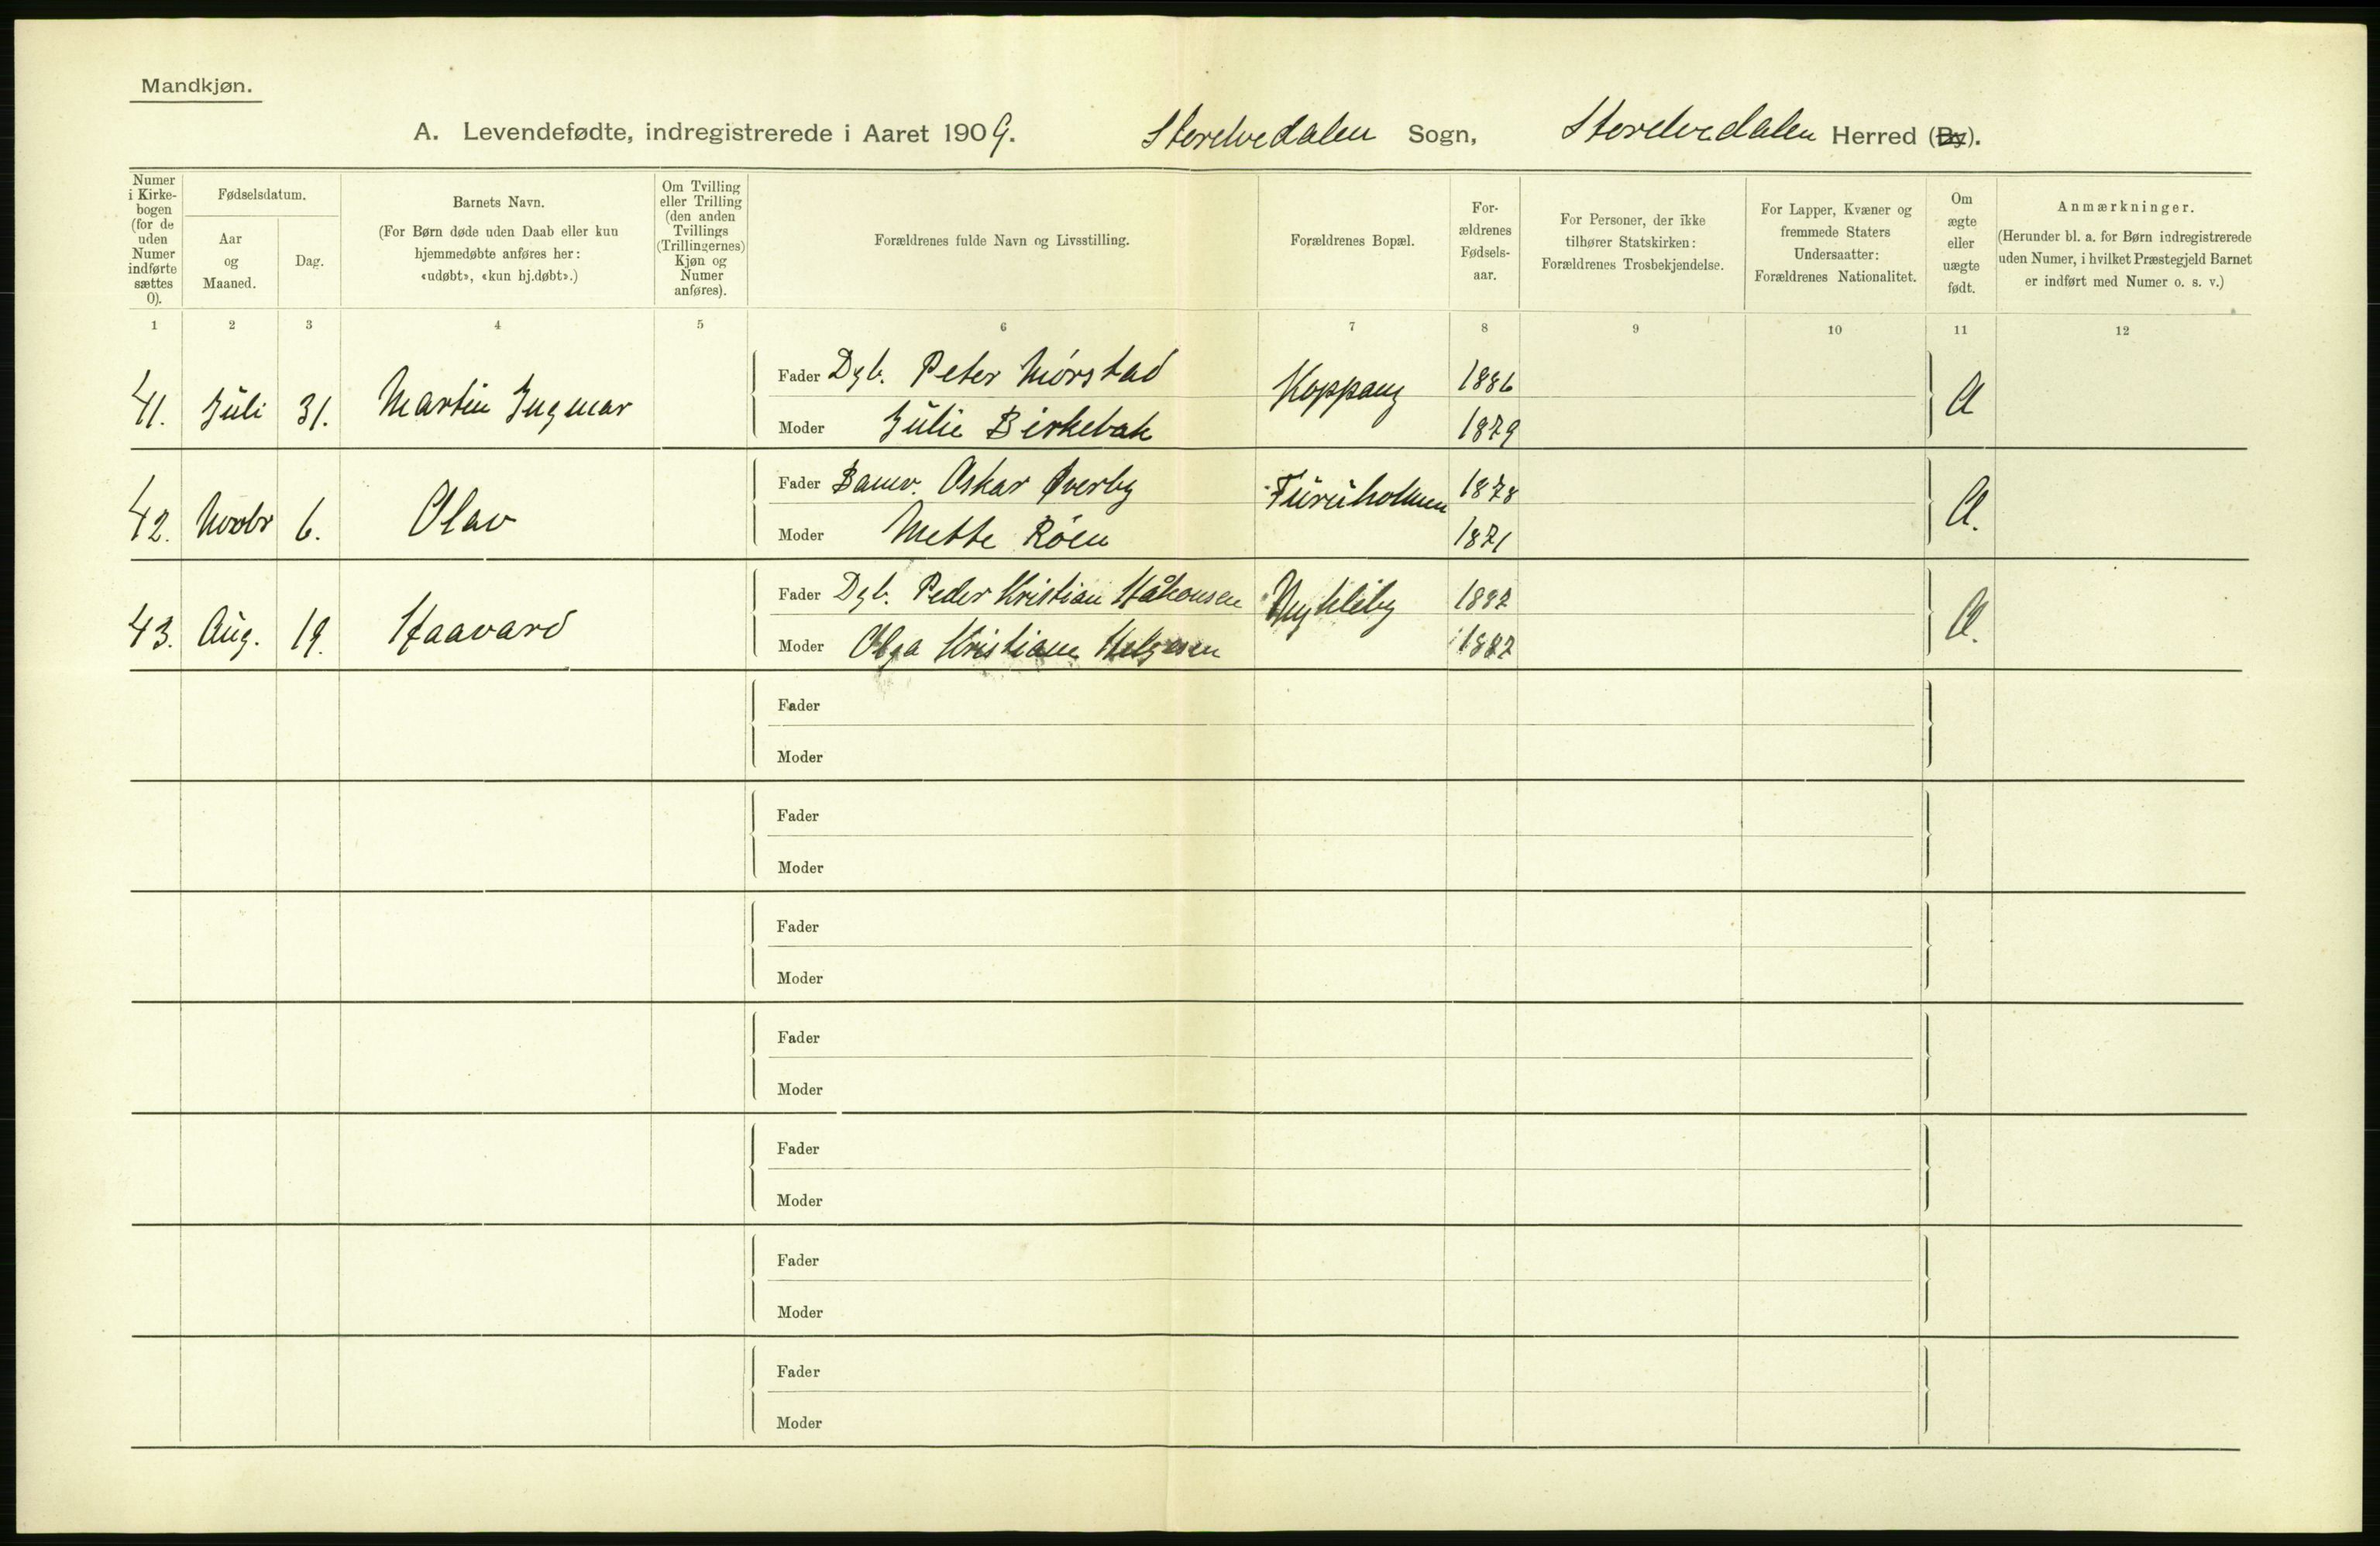 Mandkjøn.
A. Levendefødte, indregistrerede i Aaret 1909. Storelvedalen Sogn, Storelvedalen Herred (By).
Numer i Kirkebogen (for de uden Numer indførte sættes 0).
Fødselsdatum.
Aar og Maaned.
Dag.
Barnets Navn.
(For Børn døde uden Daab eller kun hjemmedøbte anføres her: «udøbt», «kun hj.døbt».)
Om Tvilling eller Trilling (den anden Tvillings (Trillingernes) Kjøn og Numer anføres).
Forældrenes fulde Navn og Livsstilling.
Forældrenes Bopæl.
Forældrenes Fødselsaar.
For Personer, der ikke tilhører Statskirken: Forældrenes Trosbekjendelse.
For Lapper, Kvæner og fremmede Staters Undersaatter: Forældrenes Nationalitet.
Om ægte eller uægte født.
Anmærkninger.
(Herunder bl. a. for Børn indregistrerede uden Numer, i hvilket Præstegjeld Barnet er indført med Numer o. s. v.)
1 2 3 4 5 6 7 8 9 10 11 12
41. Juli 31. Martin Ingmar Fader Dgb. Peter Mørstad Koppang 1886
Moder Julie Birkebak 1879
42. Novbr 6. Olav Fader Banev. Oskar Øverby Furuholmen 1878
Moder Mette Røen 1871
43. Aug. 19. Haavard Fader Dgb. Peder Kristian Håkonsen 1882
Moder Olga Kristiane Helgesen 1882
Fader
Moder
Fader
Moder
Fader
Moder
Fader
Moder
Fader
Moder
Fader
Moder
Fader
Moder